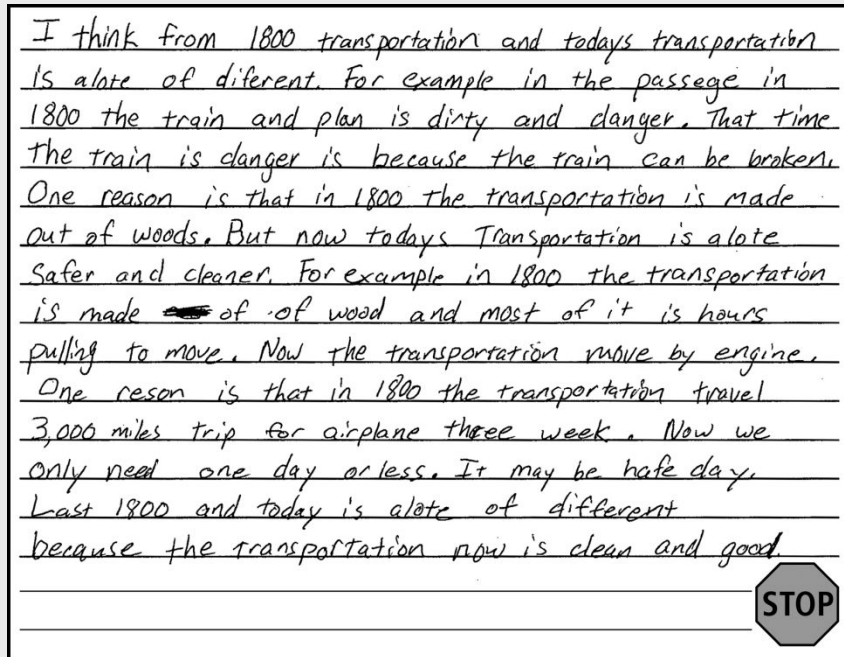 I think from 1800 transportation and todays transportation
is alote of diferent. For example in the passege in
1800 the train and plan is dirty and danger. That time
the train is danger is because the train can be broken.
One reason is that in 1800 the transportation is made
out of woods. But now todays Transportation is alote
Safer and cleaner. For example in 1800 the transportation
is made of of wood and most of it is hours
pulling to move. Now the transportation move by engine.
One reson is that in 1800 the transportation travel
3,000 miles trip for airplane three week. Now we
only need one day or less. It may be hafe day.
Last 1800 and today is alote of different
because the transportation now is clean and good.
STOP